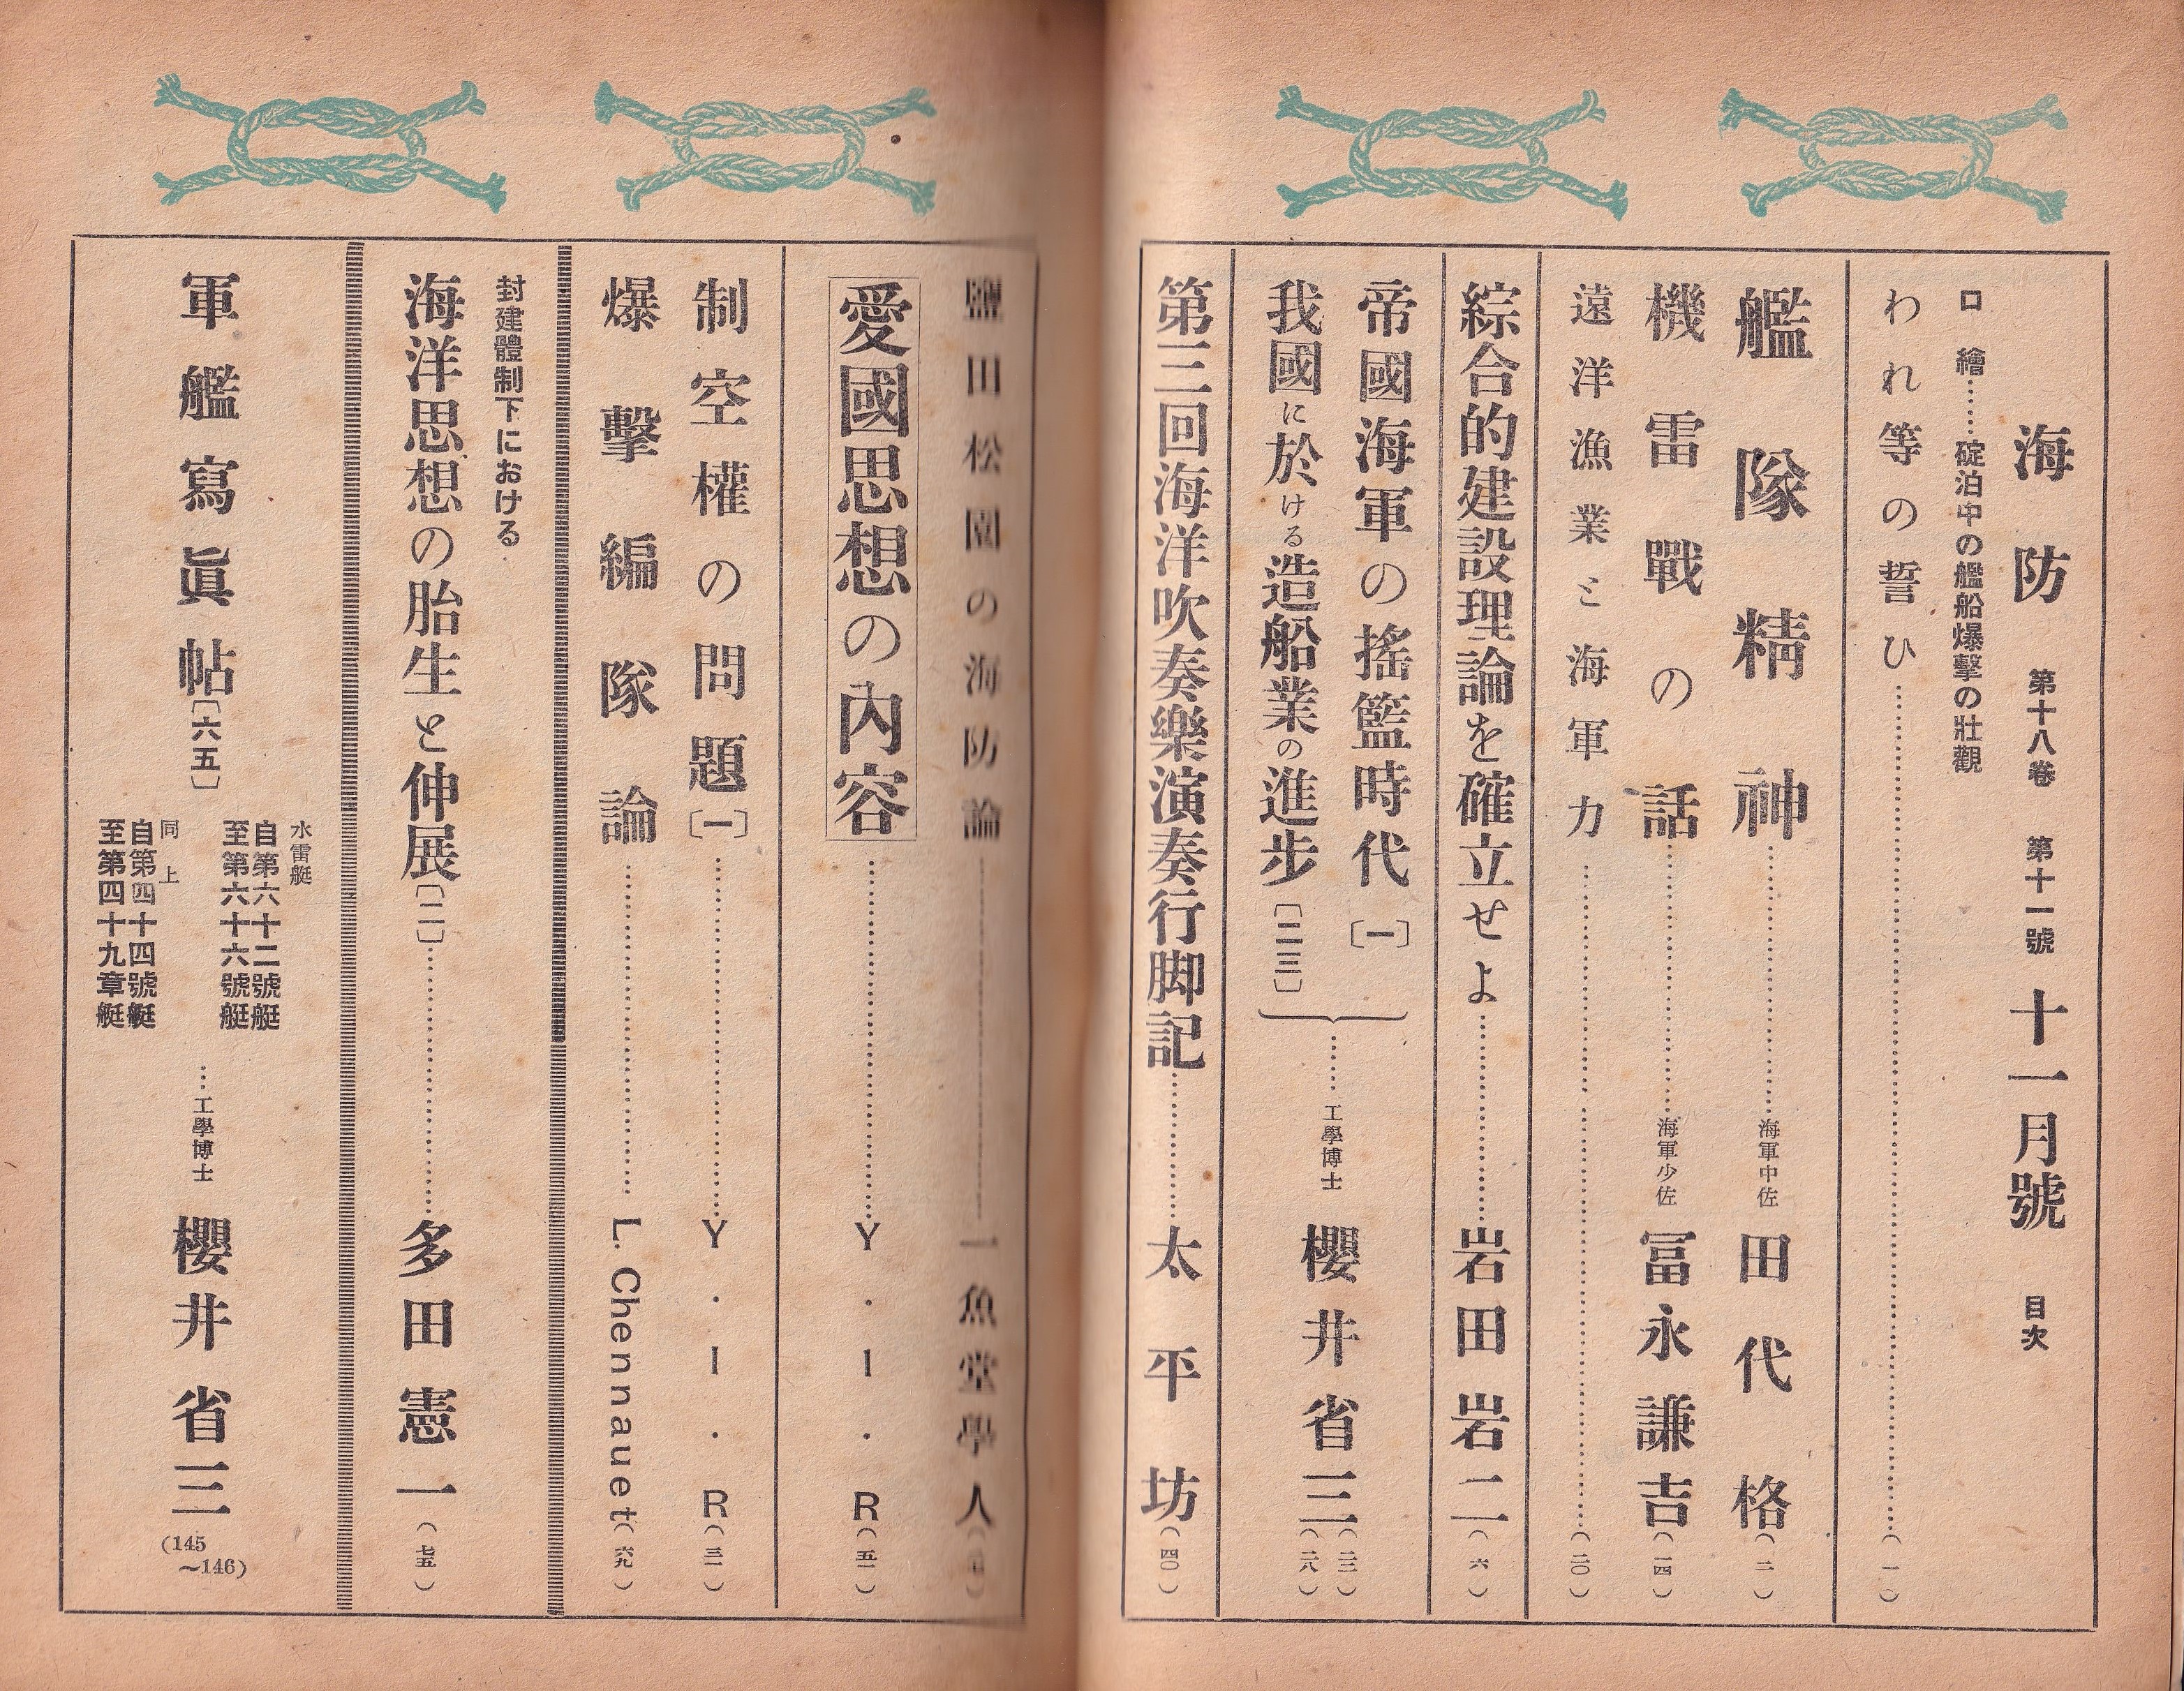 海防 第十八卷 第十一號 十一月號 目次
口繪……碇泊中の艦船爆擊の壯觀
われ等の誓ひ……(一)
艦隊精神……海軍中佐 田代格(二)
機雷戰の話……海軍少佐 冨永謙吉(一四)
遠洋漁業と海軍力……(二〇)
綜合的建設理論を確立せよ……岩田岩二(六)
帝國海軍の搖籃時代〔一〕
我國に於ける造船業の進步〔二三〕
……工學博士 櫻井省三
(二三)
(二八)
第三回海洋吹奏樂演奏行脚記……太平坊(四〇)
鹽田松園の海防論……一魚堂學人
愛國思想の內容……Y・I・R(五一)
制空權の問題〔一〕……Y・I・R(三一)
爆擊編隊論……L. Chennauet(六九)
封建體制下における
海洋思想の胎生と伸展〔二〕……多田憲一(七五)
軍艦寫眞帖〔六五〕
水雷艇
自第六十二號艇
至第六十六號艇
同上
自第四十四號艇
至第四十九章艇
……工學博士 櫻井省三
(145
～146)